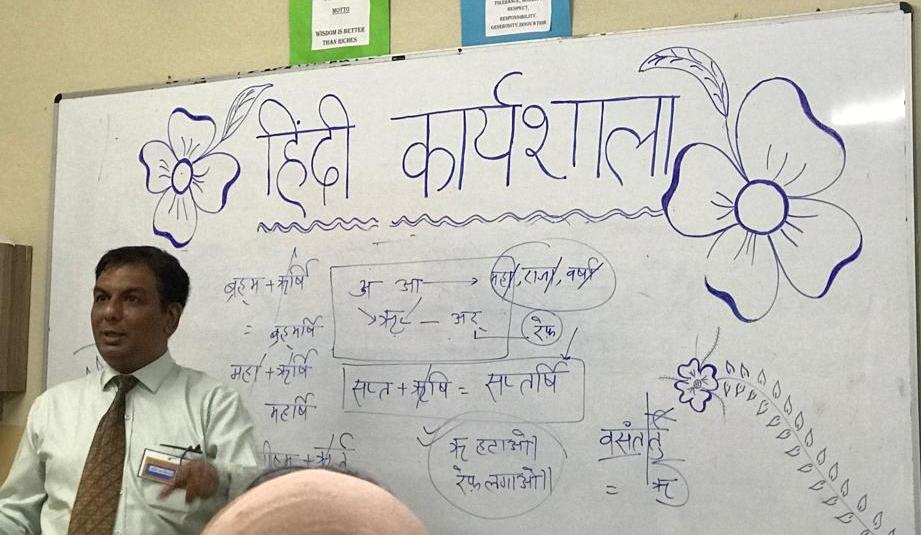 MOTTO
WISDOM IS BETTER
THAN RICHES
RESPECT,
RESPONSIBILITY,
हिंदी कार्यशाला
ब्रह्म + ऋर्षि
= ब्रह्मर्षि
महा + ऋर्षि
महर्षि
अ आ → महा, राजा, वर्षा
ऋ — अर्
रेफ़
सप्त + ऋषि = सप्तर्षि
ऋ हटाओ।
रेफ़ लगाओ॥
वसंत
= ऋ